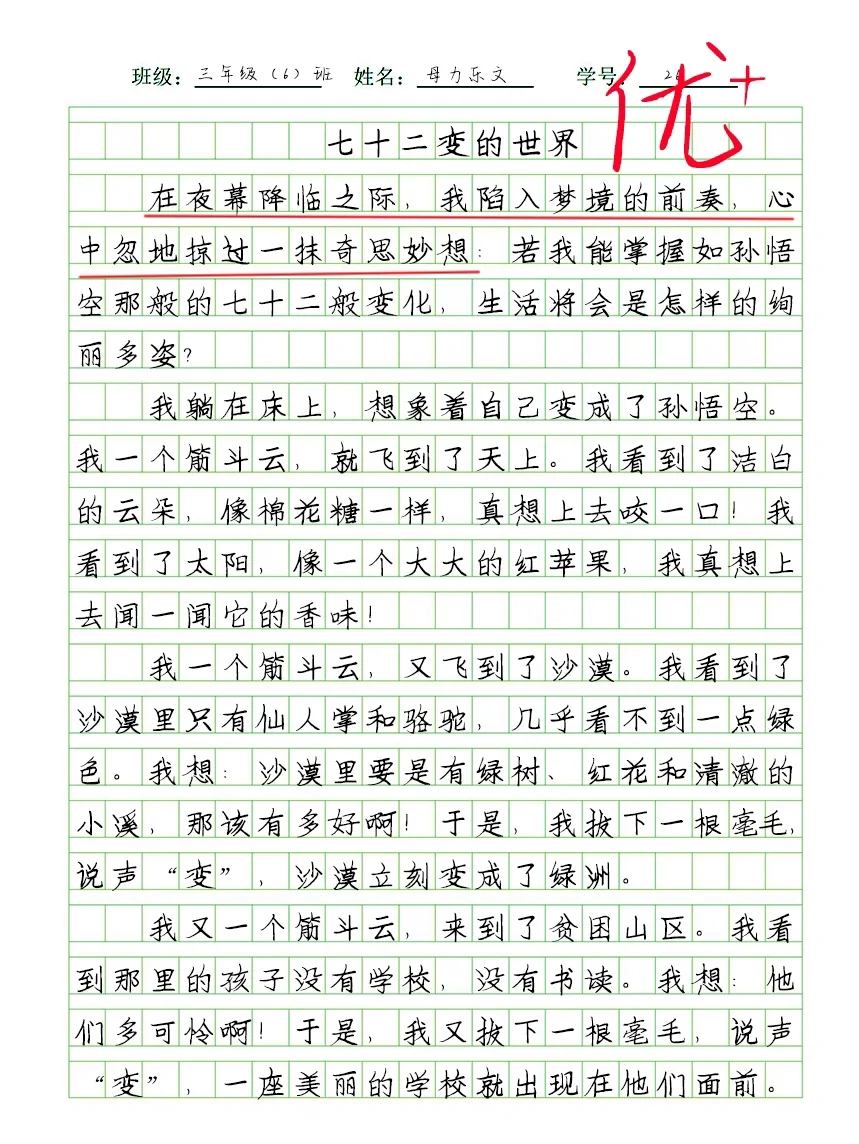 班级：三年级（6）班 姓名：母力乐文 学号：
优+
七十二变的世界
在夜幕降临之际，我陷入梦境的前奏，心
中忽地掠过一抹奇思妙想：若我能掌握如孙悟
空那般的七十二般变化，生活将会是怎样的绚
丽多姿？
我躺在床上，想象着自己变成了孙悟空。
我一个筋斗云，就飞到了天上。我看到了洁白
的云朵，像棉花糖一样，真想上去咬一口！我
看到了太阳，像一个大大的红苹果，我真想上
去闻一闻它的香味！
我一个筋斗云，又飞到了沙漠。我看到了
沙漠里只有仙人掌和骆驼，几乎看不到一点绿
色。我想：沙漠里要是有绿树、红花和清澈的
小溪，那该有多好啊！于是，我拔下一根毫毛，
说声“变”，沙漠立刻变成了绿洲。
我又一个筋斗云，来到了贫困山区。我看
到那里的孩子没有学校，没有书读。我想：他
们多可怜啊！于是，我又拔下一根毫毛，说声
“变”，一座美丽的学校就出现在他们面前。